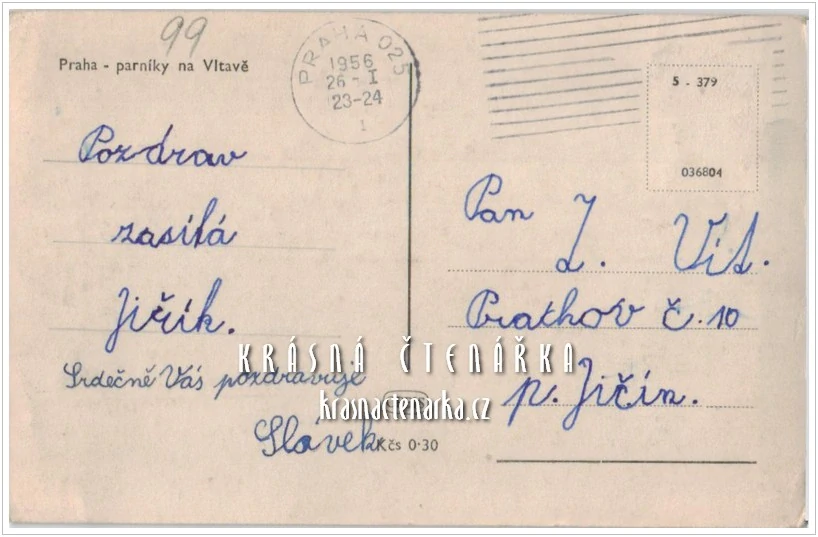 99
Praha - parníky na Vltavě
PRAHA 025
1956
26-I
23-24
1
S - 379
036804
Pozdrav
zasílá
Jiřík.
Srdečně Vás pozdravuje
Slávek.
Pan
Z. Vít.
Prachov č. 10
p. Jičín.
KRÁSNÁ ČTENÁŘKA
krasnactenarka.cz
Kčs 0·30